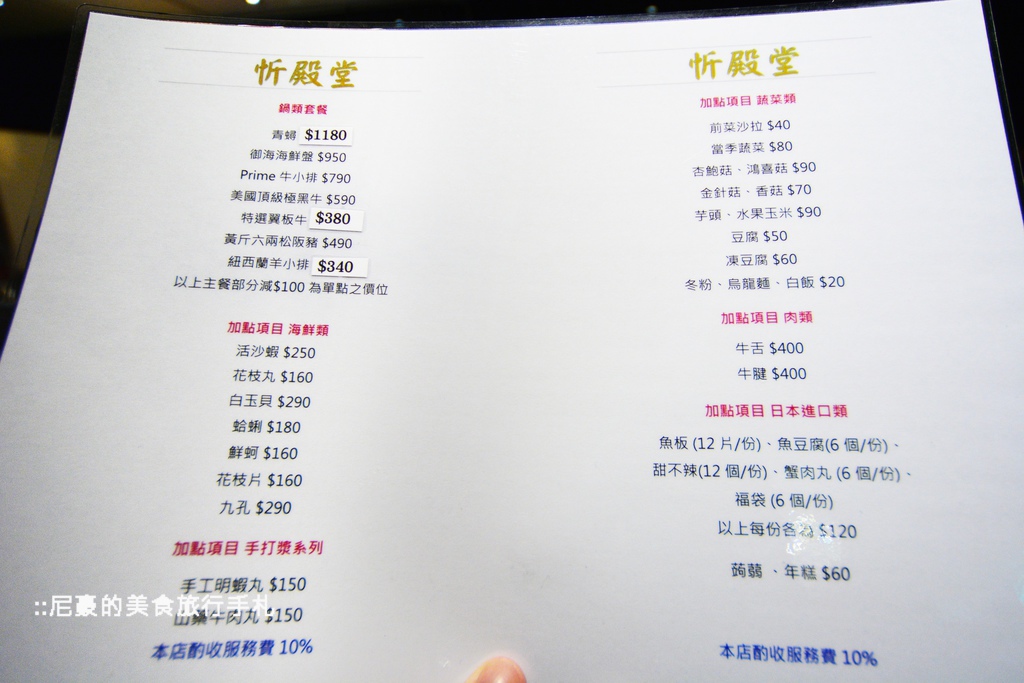 忻殿堂
鍋類套餐
青蟳 $1180
御海海鮮盤 $950
Prime 牛小排 $790
美國頂級極黑牛 $590
特選翼板牛 $380
黃斤六兩松阪豬 $490
紐西蘭羊小排 $340
以上主餐部分減$100 為單點之價位
加點項目 海鮮類
活沙蝦 $250
花枝丸 $160
白玉貝 $290
蛤蜊 $180
鮮蚵 $160
花枝片 $160
九孔 $290
加點項目 手打漿系列
手工明蝦丸 $150
山藥牛肉丸 $150
::尼豪的美食旅行手札
本店酌收服務費 10%
忻殿堂
加點項目 蔬菜類
前菜沙拉 $40
當季蔬菜 $80
杏鮑菇、鴻喜菇 $90
金針菇、香菇 $70
芋頭、水果玉米 $90
豆腐 $50
凍豆腐 $60
冬粉、烏龍麵、白飯 $20
加點項目 肉類
牛舌 $400
牛腱 $400
加點項目 日本進口類
魚板 (12 片/份)、魚豆腐(6 個/份)、
甜不辣(12 個/份)、蟹肉丸 (6 個/份)、
福袋 (6 個/份)
以上每份各為 $120
蒟蒻 、年糕 $60
本店酌收服務費 10%